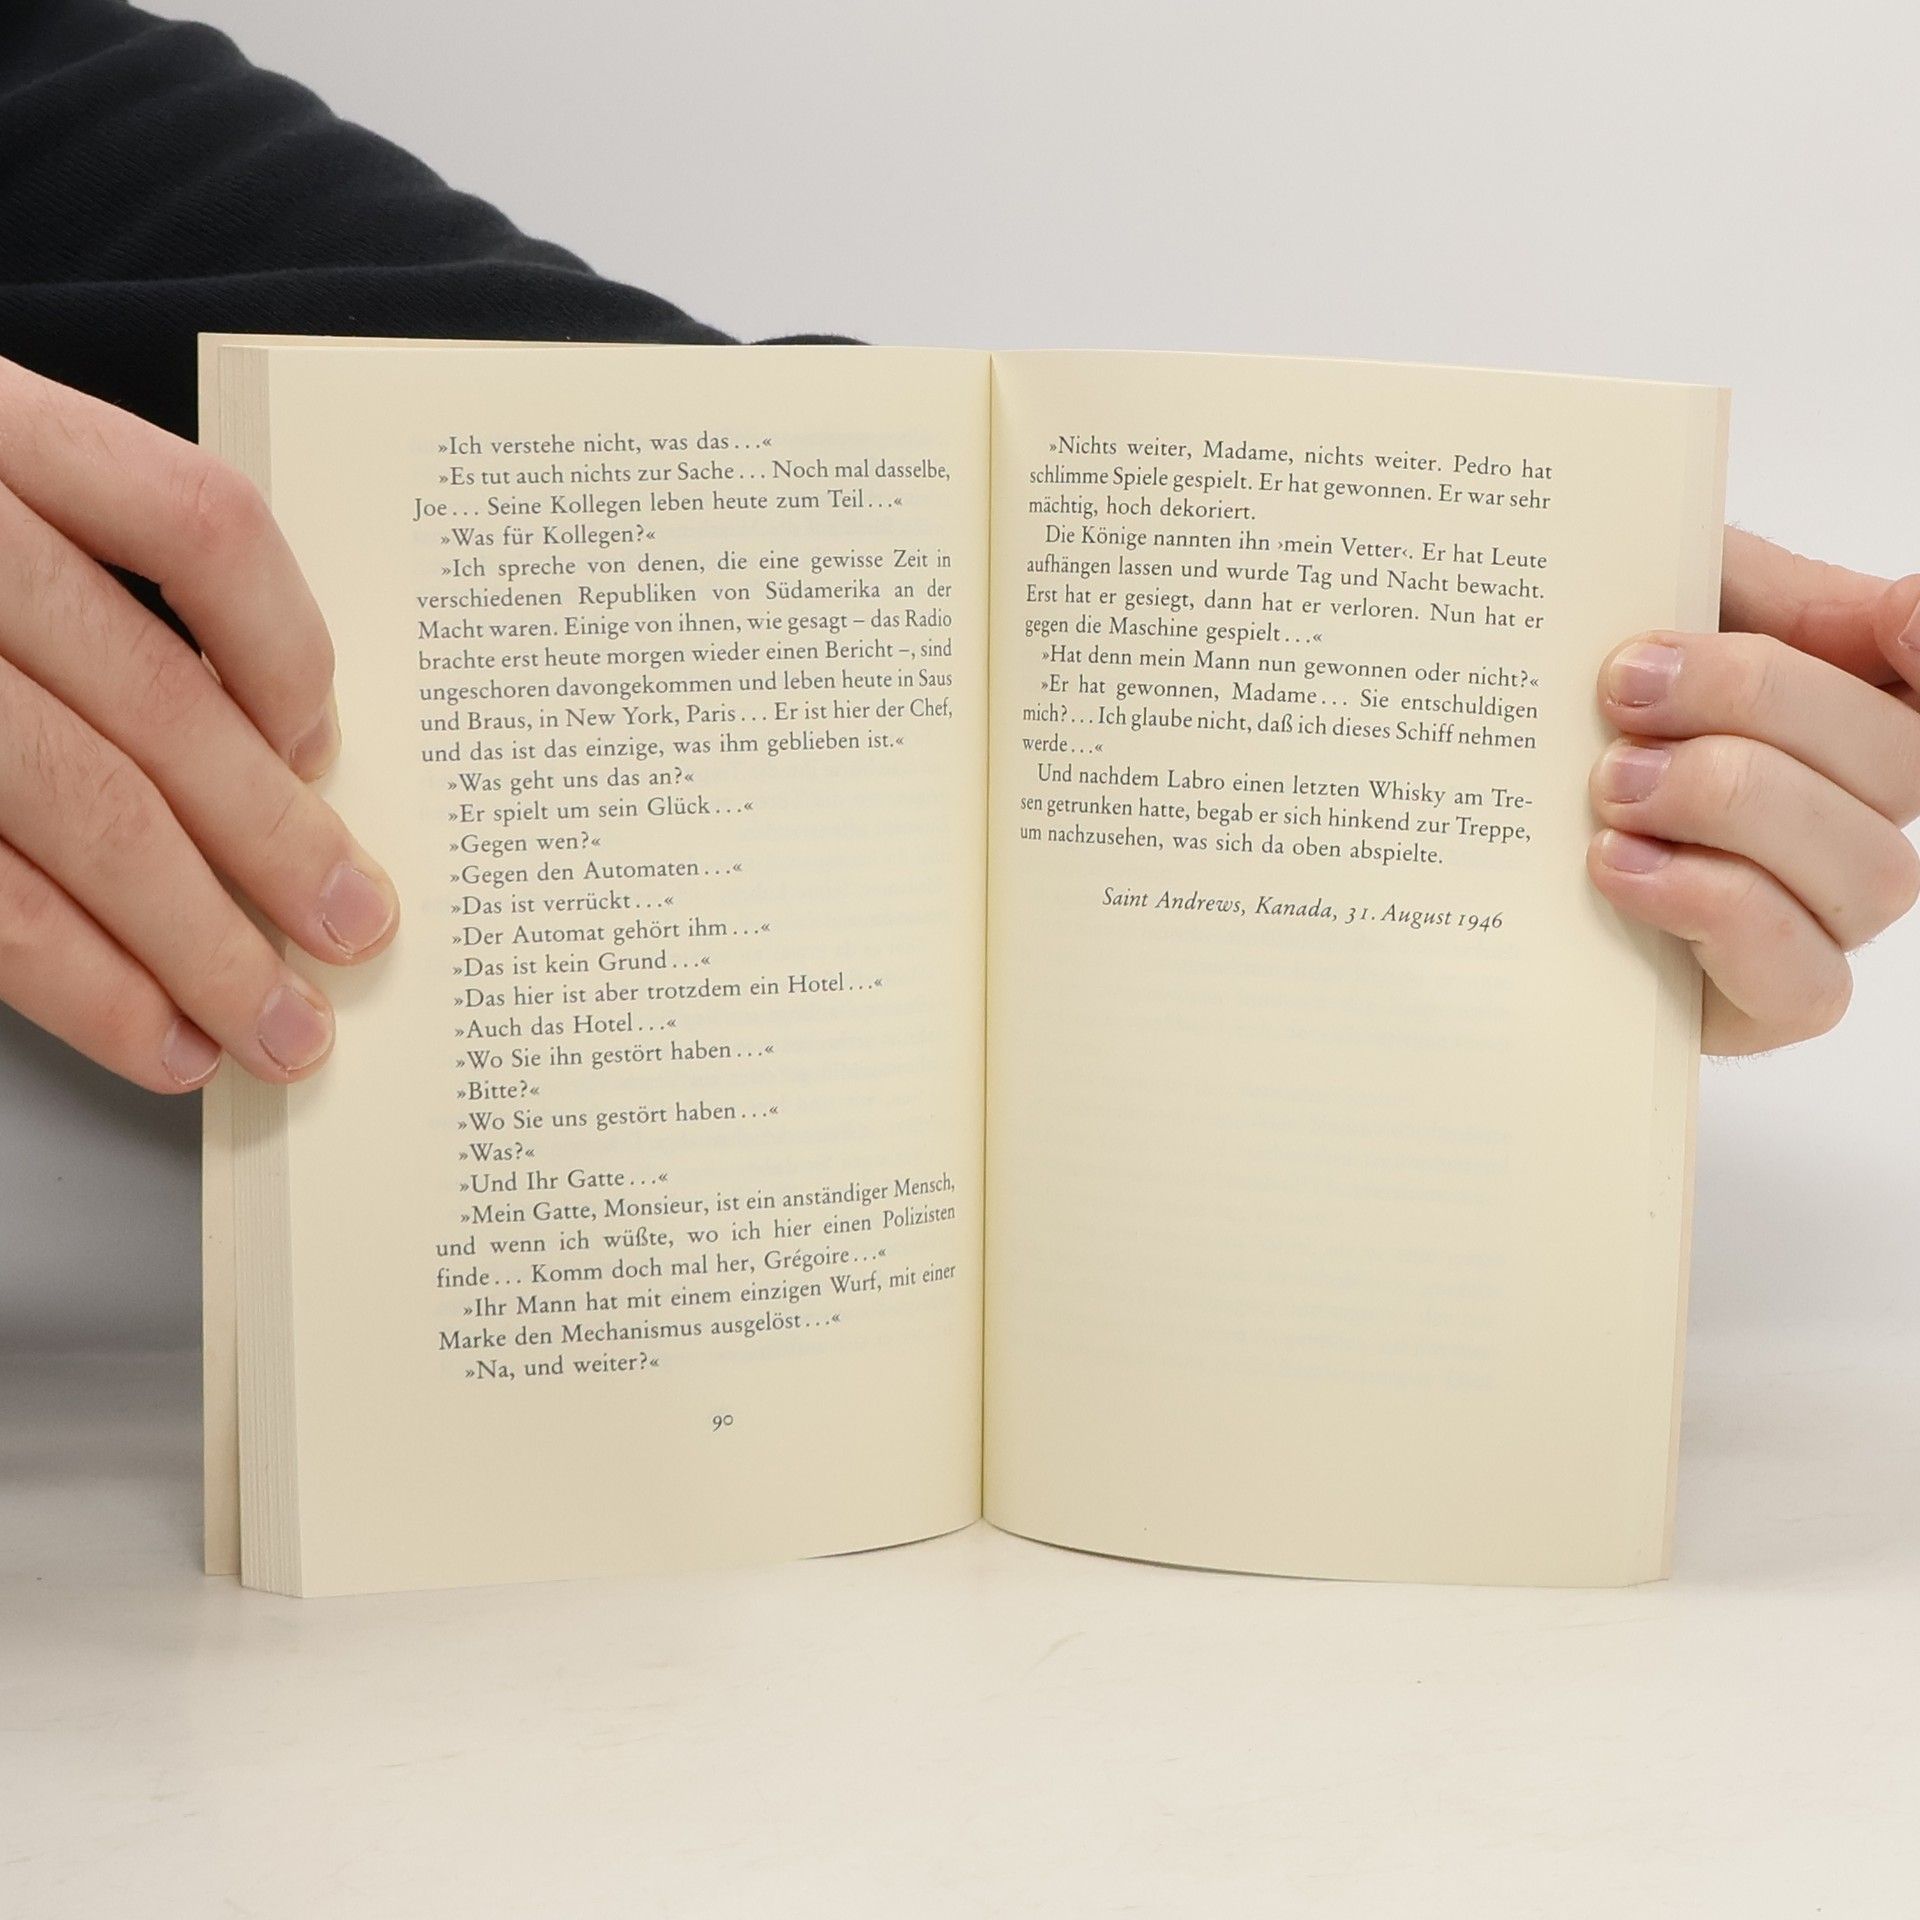 »Ich verstehe nicht, was das...«
»Es tut auch nichts zur Sache... Noch mal dasselbe,
Joe... Seine Kollegen leben heute zum Teil...«
»Was für Kollegen?«
»Ich spreche von denen, die eine gewisse Zeit in
verschiedenen Republiken von Südamerika an der
Macht waren. Einige von ihnen, wie gesagt – das Radio
brachte erst heute morgen wieder einen Bericht –, sind
ungeschoren davongekommen und leben heute in Saus
und Braus, in New York, Paris... Er ist hier der Chef,
und das ist das einzige, was ihm geblieben ist.«
»Was geht uns das an?«
»Er spielt um sein Glück...«
»Gegen wen?«
»Gegen den Automaten...«
»Das ist verrückt...«
»Der Automat gehört ihm...«
»Das ist kein Grund...«
»Das hier ist aber trotzdem ein Hotel...«
»Auch das Hotel...«
»Wo Sie ihn gestört haben...«
»Bitte?«
»Wo Sie uns gestört haben...«
»Was?«
»Und Ihr Gatte...«
»Mein Gatte, Monsieur, ist ein anständiger Mensch,
und wenn ich wüßte, wo ich hier einen Polizisten
finde... Komm doch mal her, Grégoire...«
»Ihr Mann hat mit einem einzigen Wurf, mit einer
Marke den Mechanismus ausgelöst...«
»Na, und weiter?«
90
»Nichts weiter, Madame, nichts weiter. Pedro hat
schlimme Spiele gespielt. Er hat gewonnen. Er war sehr
mächtig, hoch dekoriert.
Die Könige nannten ihn ›mein Vetter‹. Er hat Leute
aufhängen lassen und wurde Tag und Nacht bewacht.
Erst hat er gesiegt, dann hat er verloren. Nun hat er
gegen die Maschine gespielt...«
»Hat denn mein Mann nun gewonnen oder nicht?«
»Er hat gewonnen, Madame... Sie entschuldigen
mich?... Ich glaube nicht, daß ich dieses Schiff nehmen
werde...«
Und nachdem Labro einen letzten Whisky am Tre-
sen getrunken hatte, begab er sich hinkend zur Treppe,
um nachzusehen, was sich da oben abspielte.
Saint Andrews, Kanada, 31. August 1946